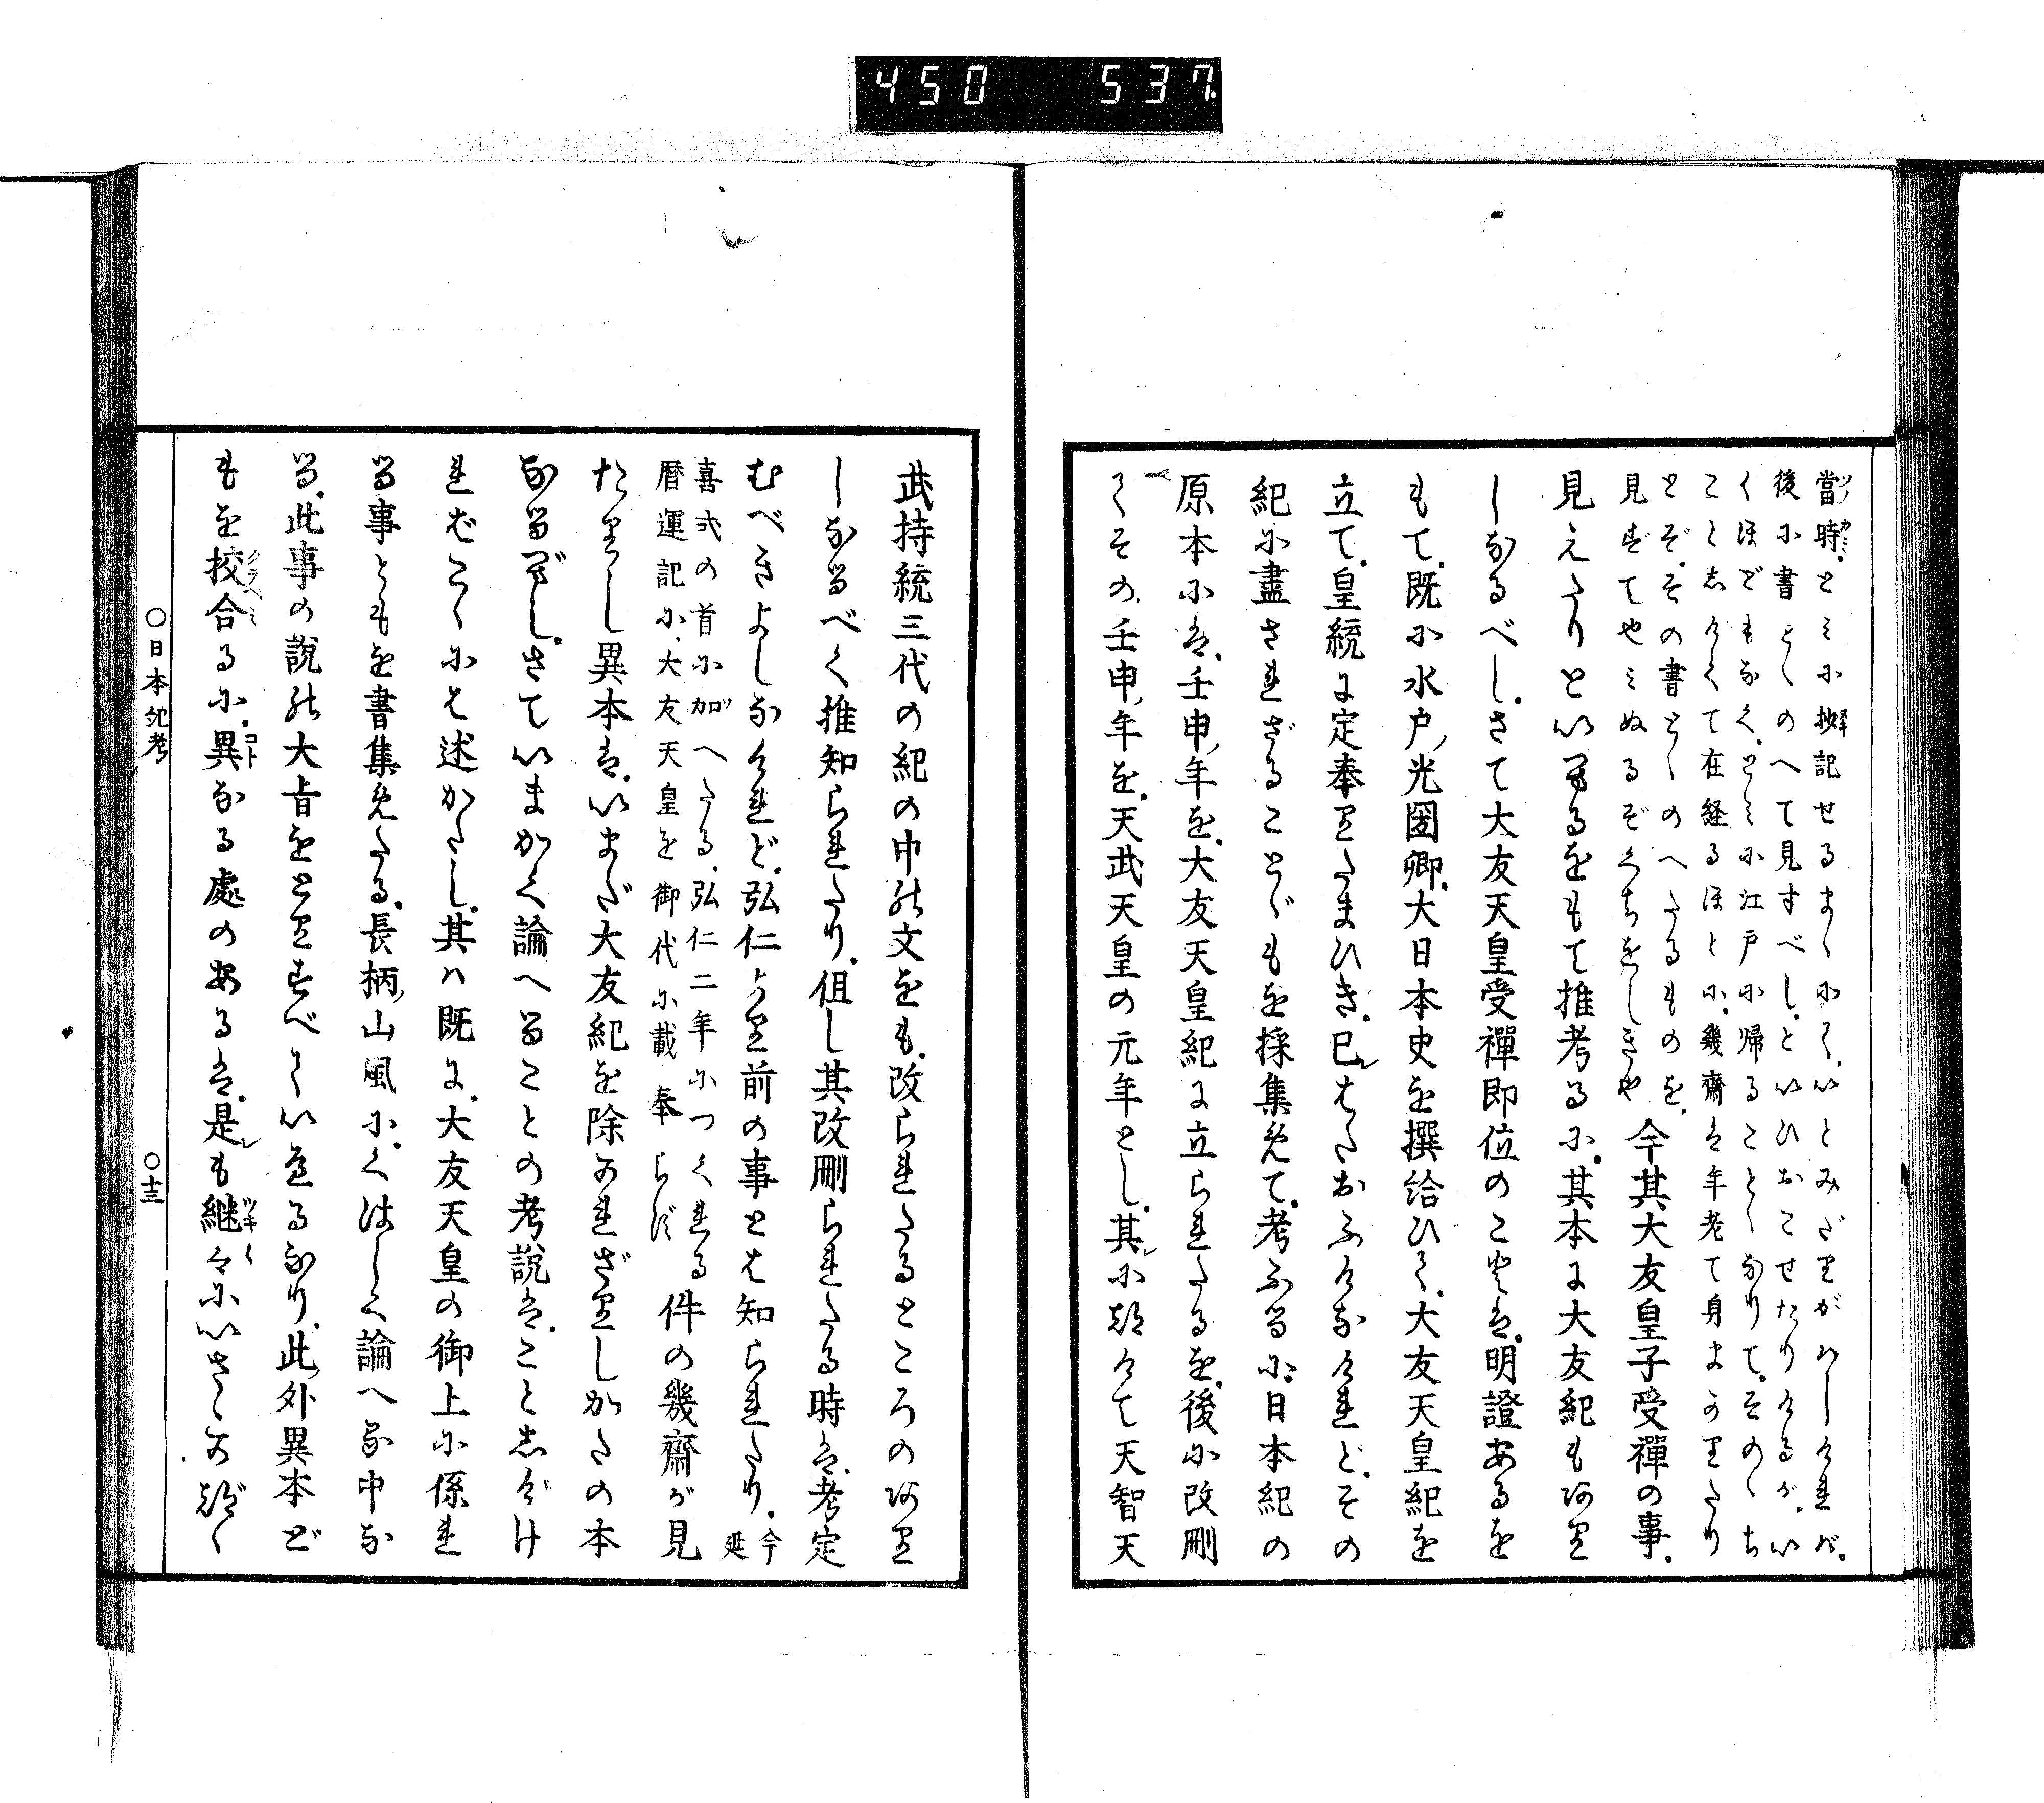 450 537
當時とみに抄記せるまゝにて、いとみだりがはしければ、
後に書とゝのへて見すべし、といひおこせたりけるが、い
くほどもなく、とみに江戸に帰ることゝなりて、そのゝち
こと志げくて在経るほとに、幾齋は年老て身まかりたり
とぞ、その書とゝのへたるものを、
見ずてやミぬるぞくちをしきや 今其大友皇子受禪の事、
見えたりといへるをもて推考るに、其本に大友紀もあり
しなるべし、さて大友天皇受禪即位のことは、明證あるを
もて、既に水戸光圀卿、大日本史を撰給ひて、大友天皇紀を
立て、皇統に定奉りたまひき、己レはたおふけなけれど、その
紀に盡されざることゞもを採集めて、考ふるに、日本紀の
原本には、壬申年を、大友天皇紀に立られたるを、後に改刪
てその壬申年を、天武天皇の元年とし、其レに就けて天智天
武持統三代の紀の中の文をも、改られたるところのあり
しなるべく推知られたり、但し其改刪られたる時は、考定
むべきよしなけれど、弘仁より前の事とは知られたり、今延
喜式の首に加へたる、弘仁二年につくれる
暦運記に、大友天皇を御代に載奉らず 件の幾齋が見
たりし異本は、いまだ大友紀を除かれざりしかたの本
なるべし、さていまかく論へることの考説は、こと志げけ
ればこゝには述かたし、其ハ既に、大友天皇の御上に係れ
る事ともを書集めたる、長柄山風に、くはしく論へる中な
る、此事の説の大旨をとりすべていへるなり、此外異本ど
もを挍合るに、異なる處のあるは、是レも継々にいさゝか就ぎ
〇日本紀考 〇十三